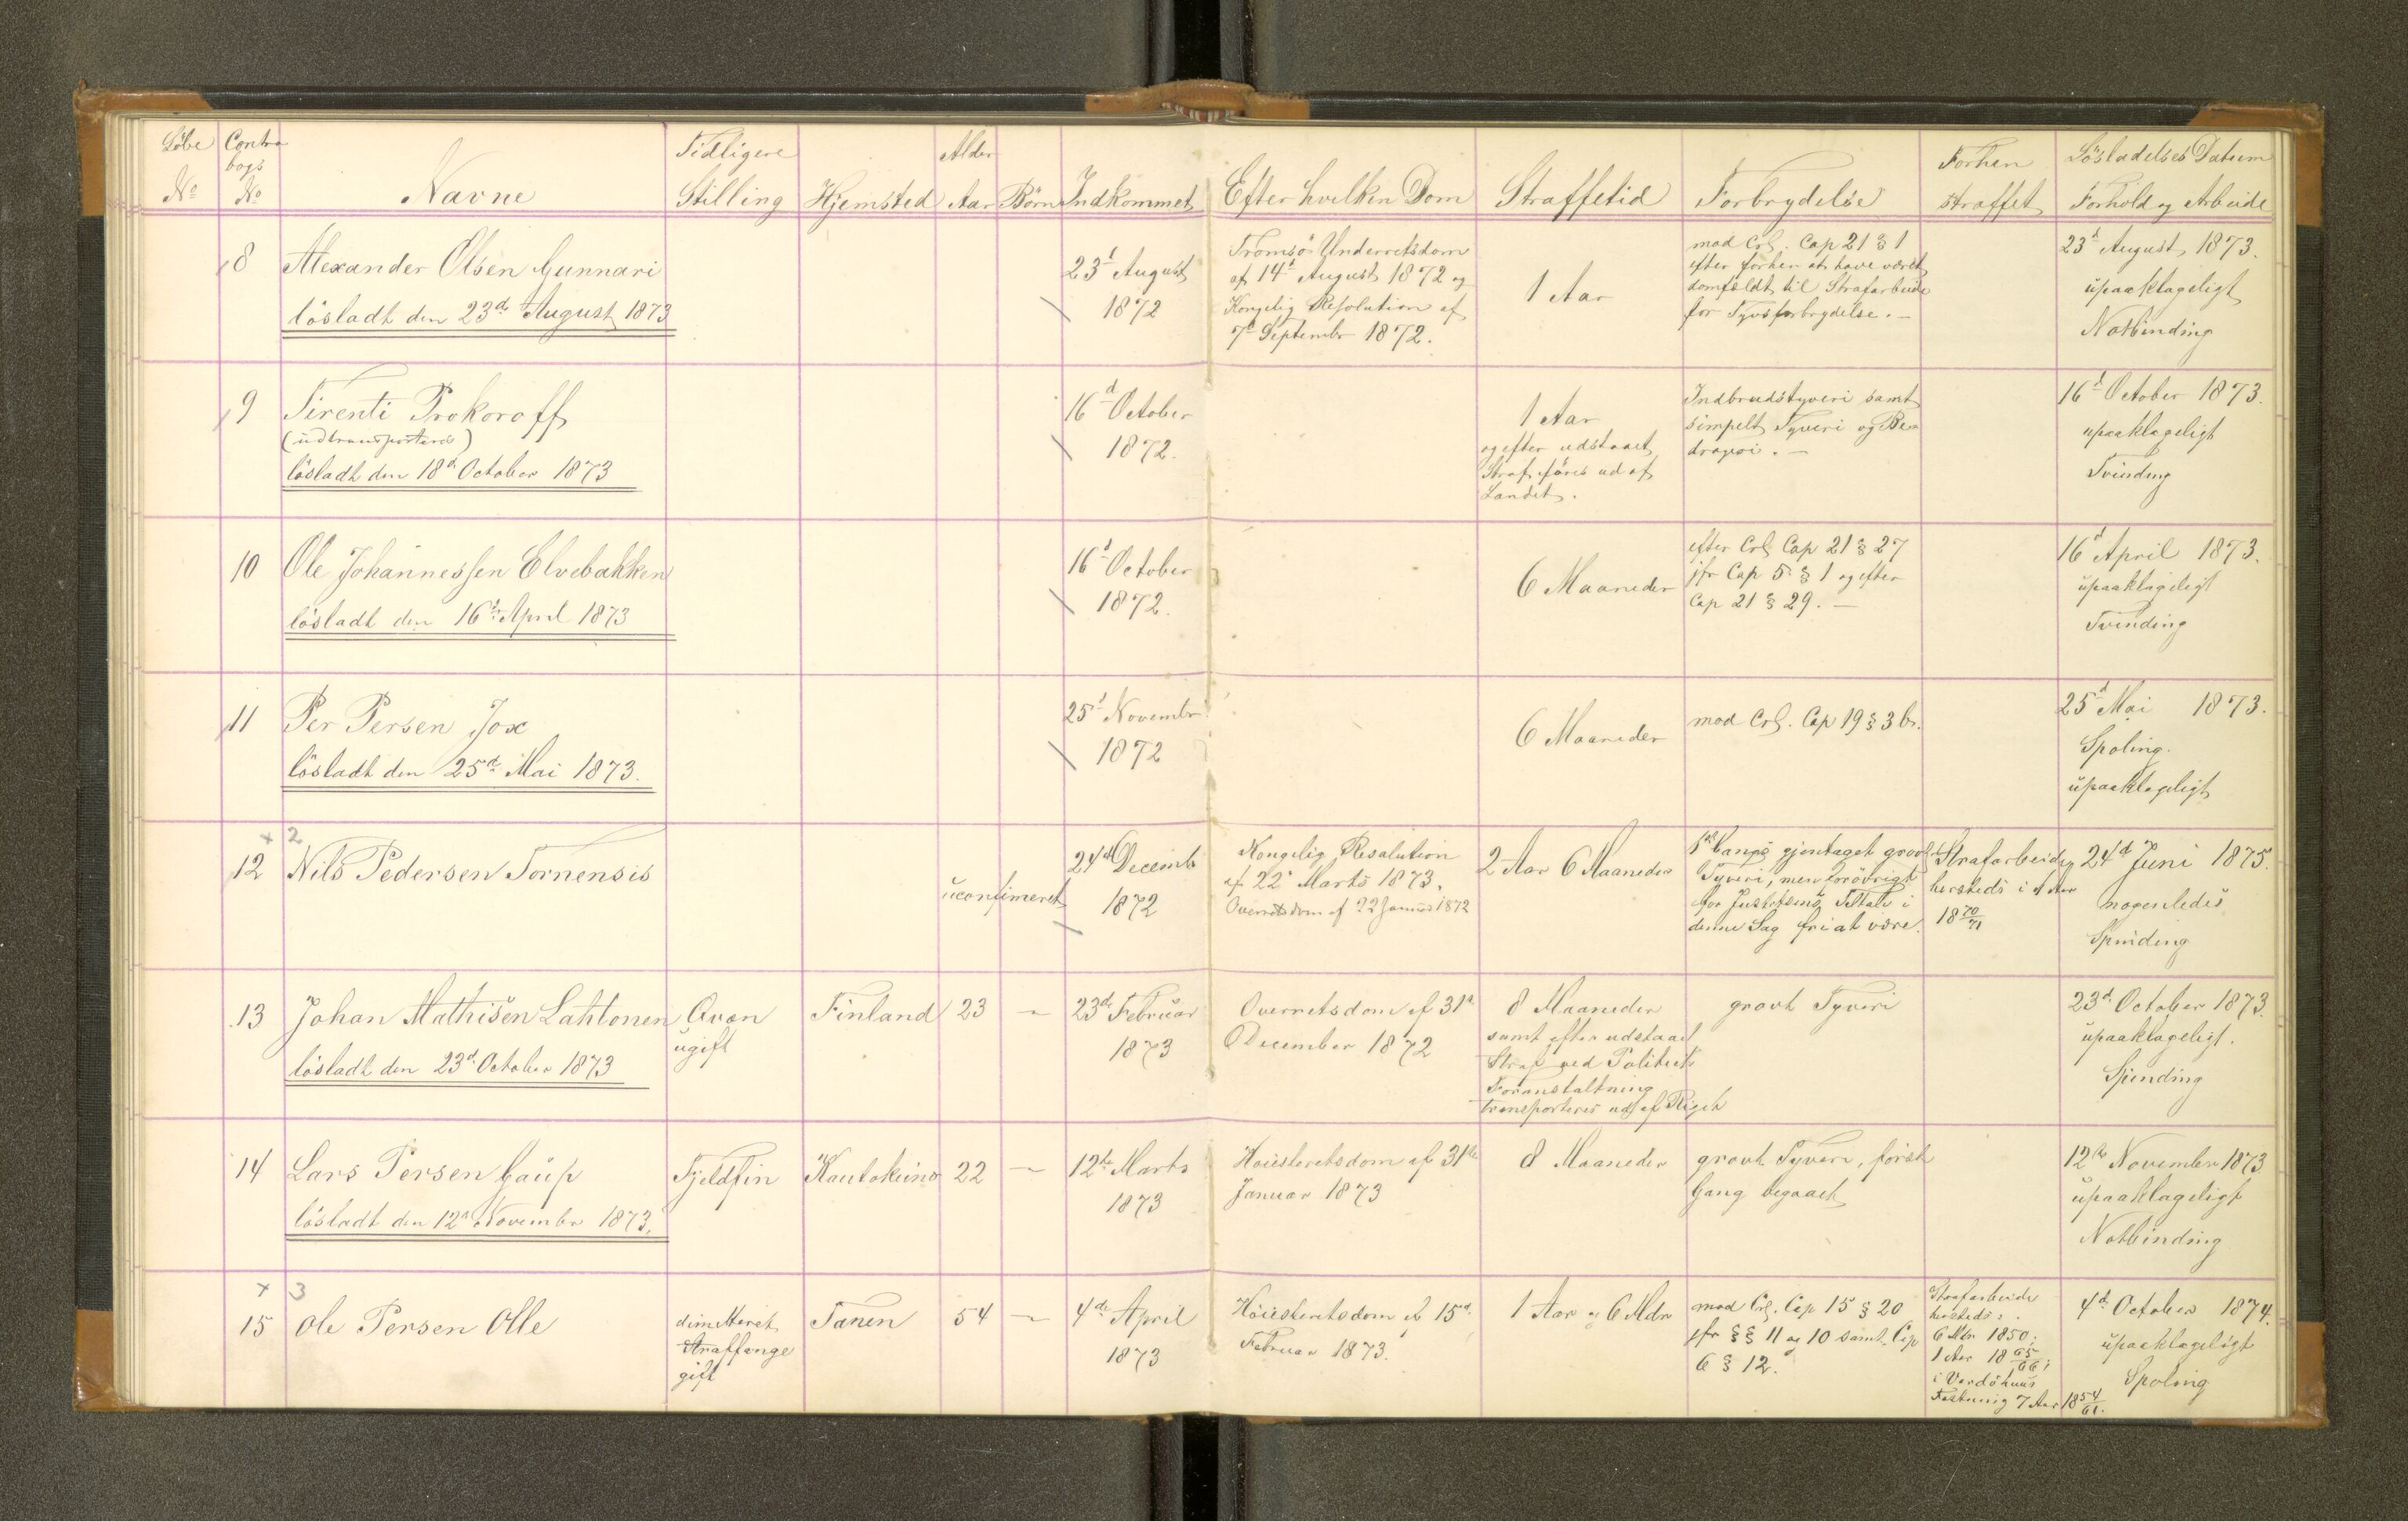 Löbe No
Contra bogs No
Navne
Tidligere Stilling
Hjemsted
Alder Aar
Börn
Indkommet
Efter hvilken Dom
Straffetid
Forbrydelse
Forhen straffet
Lösladelses Datum
Forhold og Arbeide
8
Alexander Olsen Gunnari
lösladt den 23de August 1873
23d August
1872
Tromsö Underretsdom
af 14d August 1872 og
Kongelig Resolution af
7d Septembr 1872.
1 Aar
mod Crl. Cap 21 § 1
efter forhen at have været
domfældt til Strafarbeide
for Tyvsforbrydelse. —
23d August 1873.
upaaklageligt
Notbinding
9
Tirenti Prokoroff
(udtransporteres)
lösladt den 18d October 1873
16d October
1872.
1 Aar
og efter udstaaet
Straf föres ud af
Landet.
Indbrudstyveri samt
simpelt Tyveri og Be-
drageri. —
16d October 1873.
upaaklageligt
Tvinding
10
Ole Johannessen Elvebakken
lösladt den 16de April 1873
16d October
1872.
6 Maaneder
efter Crl Cap 21 § 27
jfr Cap 5 § 1 og efter
Cap 21 § 29. —
16d April 1873.
upaaklageligt
Tvinding
11
Per Persen Jox
lösladt den 25d Mai 1873.
25d Novembr
1872
6 Maaneder
mod Crl. Cap 19 § 3 b.
25d Mai 1873.
Spoling.
upaaklageligt
x 2
12
Nils Pedersen Tornensis
uconfirmeret
24d Decemb
1872
Kongelig Resolution
af 22 Marts 1873.
Overretsdom af 22 Januar 1872
2 Aar 6 Maaneder
Gangs gjentaget grovt
Tyveri, men forövrigt
for Justitiens Tiltale i
denne Sag fri at være.
Strafarbeide
hersteds i 1 Aar
18 70/71
24d Juni 1875.
nogenledes
Spinding
13
Johan Mathisen Lahtonen
lösladt den 23d October 1873
Qvæn
ugift
Finland
23
—
23de Februar
1873
Overretsdom af 31d
December 1872
8 Maaneder
samt efter udstaaet
Straf ved Politiets
Foranstaltning
transporteres ud af Riget
grovt Tyveri
23d October 1873.
upaaklageligt.
Spinding
14
Lars Persen Gaup
lösladt den 12d November 1873.
Fjeldfin
Kautokeino
22
—
12te Marts
1873
Höiesteretsdom af 31te
Januar 1873
8 Maaneder
grovt Tyveri, först
Gang begaaet
12te November 1873
upaaklageligt
Notbinding
x 3
15
Ole Persen Olle
dimitteret
Straffange
gift
Tanen
54
—
4de April
1873
Höiesteretsdom af 15d
Februar 1873.
1 Aar og 6 Mdr
mod Crl. Cap 15 § 20
jfr §§ 11 og 10 samt Cap
6 § 12.
Strafarbeide
hersteds:
6 Mdr 1850;
1 Aar 18 65/66;
i Vardöhuus
Festning 7 Aar 18 54/61.
4d October 1874.
upaaklageligt
Spoling